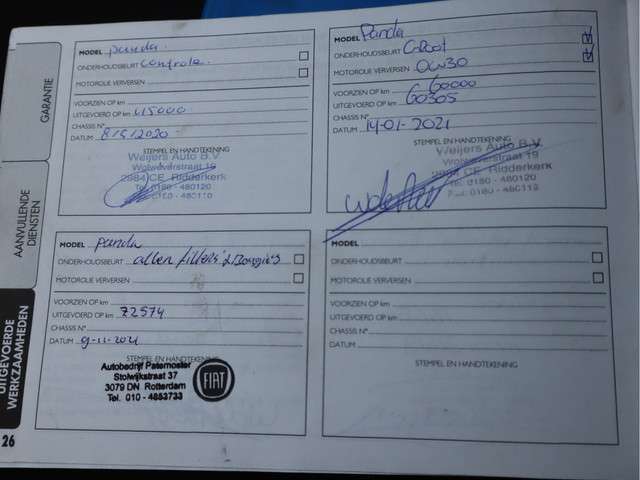 GARANTIE
AANVULLENDE
DIENSTEN
UITGEVOERDE
WERKZAAMHEDEN
26
MODEL panda
ONDERHOUDSBEURT Controle
MOTOROLIE VERVERSEN
VOORZIEN OP km
UITGEVOERD OP km 45000
CHASSIS N°
DATUM 8/5/2020
STEMPEL EN HANDTEKENING
Weijers Auto B.V.
Wolweverstraat 19
2984 CE Ridderkerk
Tel. 0180 - 480120
0180 - 480110
MODEL Panda
ONDERHOUDSBEURT Groot
MOTOROLIE VERVERSEN 0W30
VOORZIEN OP km 60000
UITGEVOERD OP km 60305
CHASSIS N°
DATUM 14-01-2021
STEMPEL EN HANDTEKENING
Weijers Auto B.V.
Wolweverstraat 19
2984 CE Ridderkerk
Tel. 0180 - 480120
0180 - 480110
MODEL panda
ONDERHOUDSBEURT allen filters
MOTOROLIE VERVERSEN
VOORZIEN OP km
UITGEVOERD OP km 72574
CHASSIS N°
DATUM 9-11-2021
STEMPEL EN HANDTEKENING
Autobedrijf Paternoster
Stolwijkstraat 37
3079 DN Rotterdam
Tel. 010 - 4833733
FIAT
MODEL
ONDERHOUDSBEURT
MOTOROLIE VERVERSEN
VOORZIEN OP km
UITGEVOERD OP km
CHASSIS N°
DATUM
STEMPEL EN HANDTEKENING